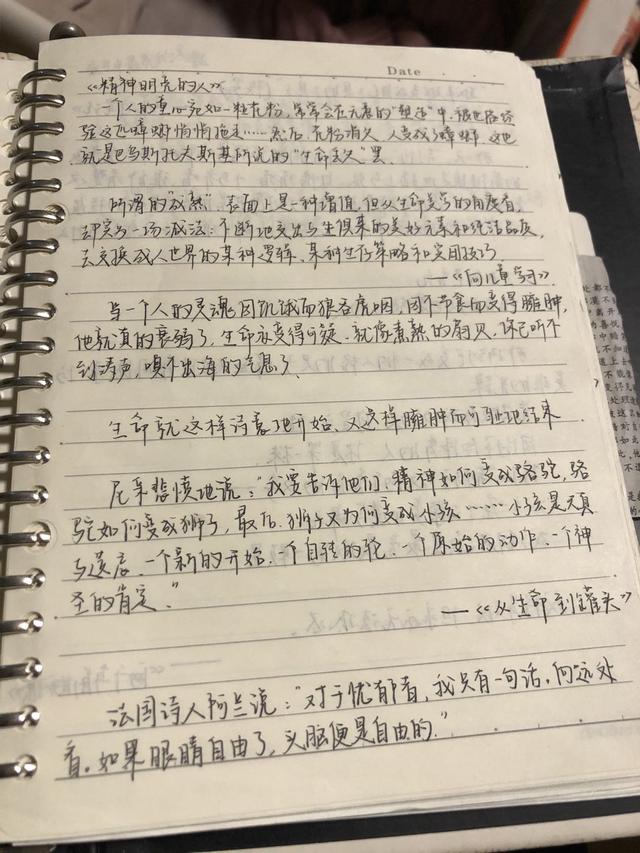 Date
《精神明亮的人》
一个人的童心宛如一粒花粉，常常会在无意的"塑造"中，被世故经
验这匹蟑螂悄悄拖走……然后，花粉消失，人变成了蟑螂。这也
就是巴乌斯托夫斯基所说的"生命丢失"罢。
所谓的"成熟"，表面上是一种增值，但从生命美学的角度看，
却实为一场减法：不断地交出与生俱来的美好元素和纯洁品质，
去交换成人世界的某种逻辑、某种生存策略和实用技巧。
——《向儿童学习》
当一个人的灵魂因饥饿而狼吞虎咽，因不节食而变得臃肿，
他就真的衰弱了，生命亦变得可疑。就像煮熟的扇贝，你已听不
到涛声，嗅不出海的气息了。
生命就这样诗意地开始，又这样臃肿而可耻地结束
尼采悲愤地说："我要告诉他们，精神如何变成骆驼，骆
驼如何变成狮子，最后，狮子又为何变成小孩……小孩是天真
与遗忘，一个新的开始，一个自转的轮，一个原始的动作，一个神
圣的肯定。"
——《从生命到罐头》
法国诗人阿兰说："对于忧郁者，我只有一句话，向远处
看。如果眼睛自由了，头脑便是自由的。"